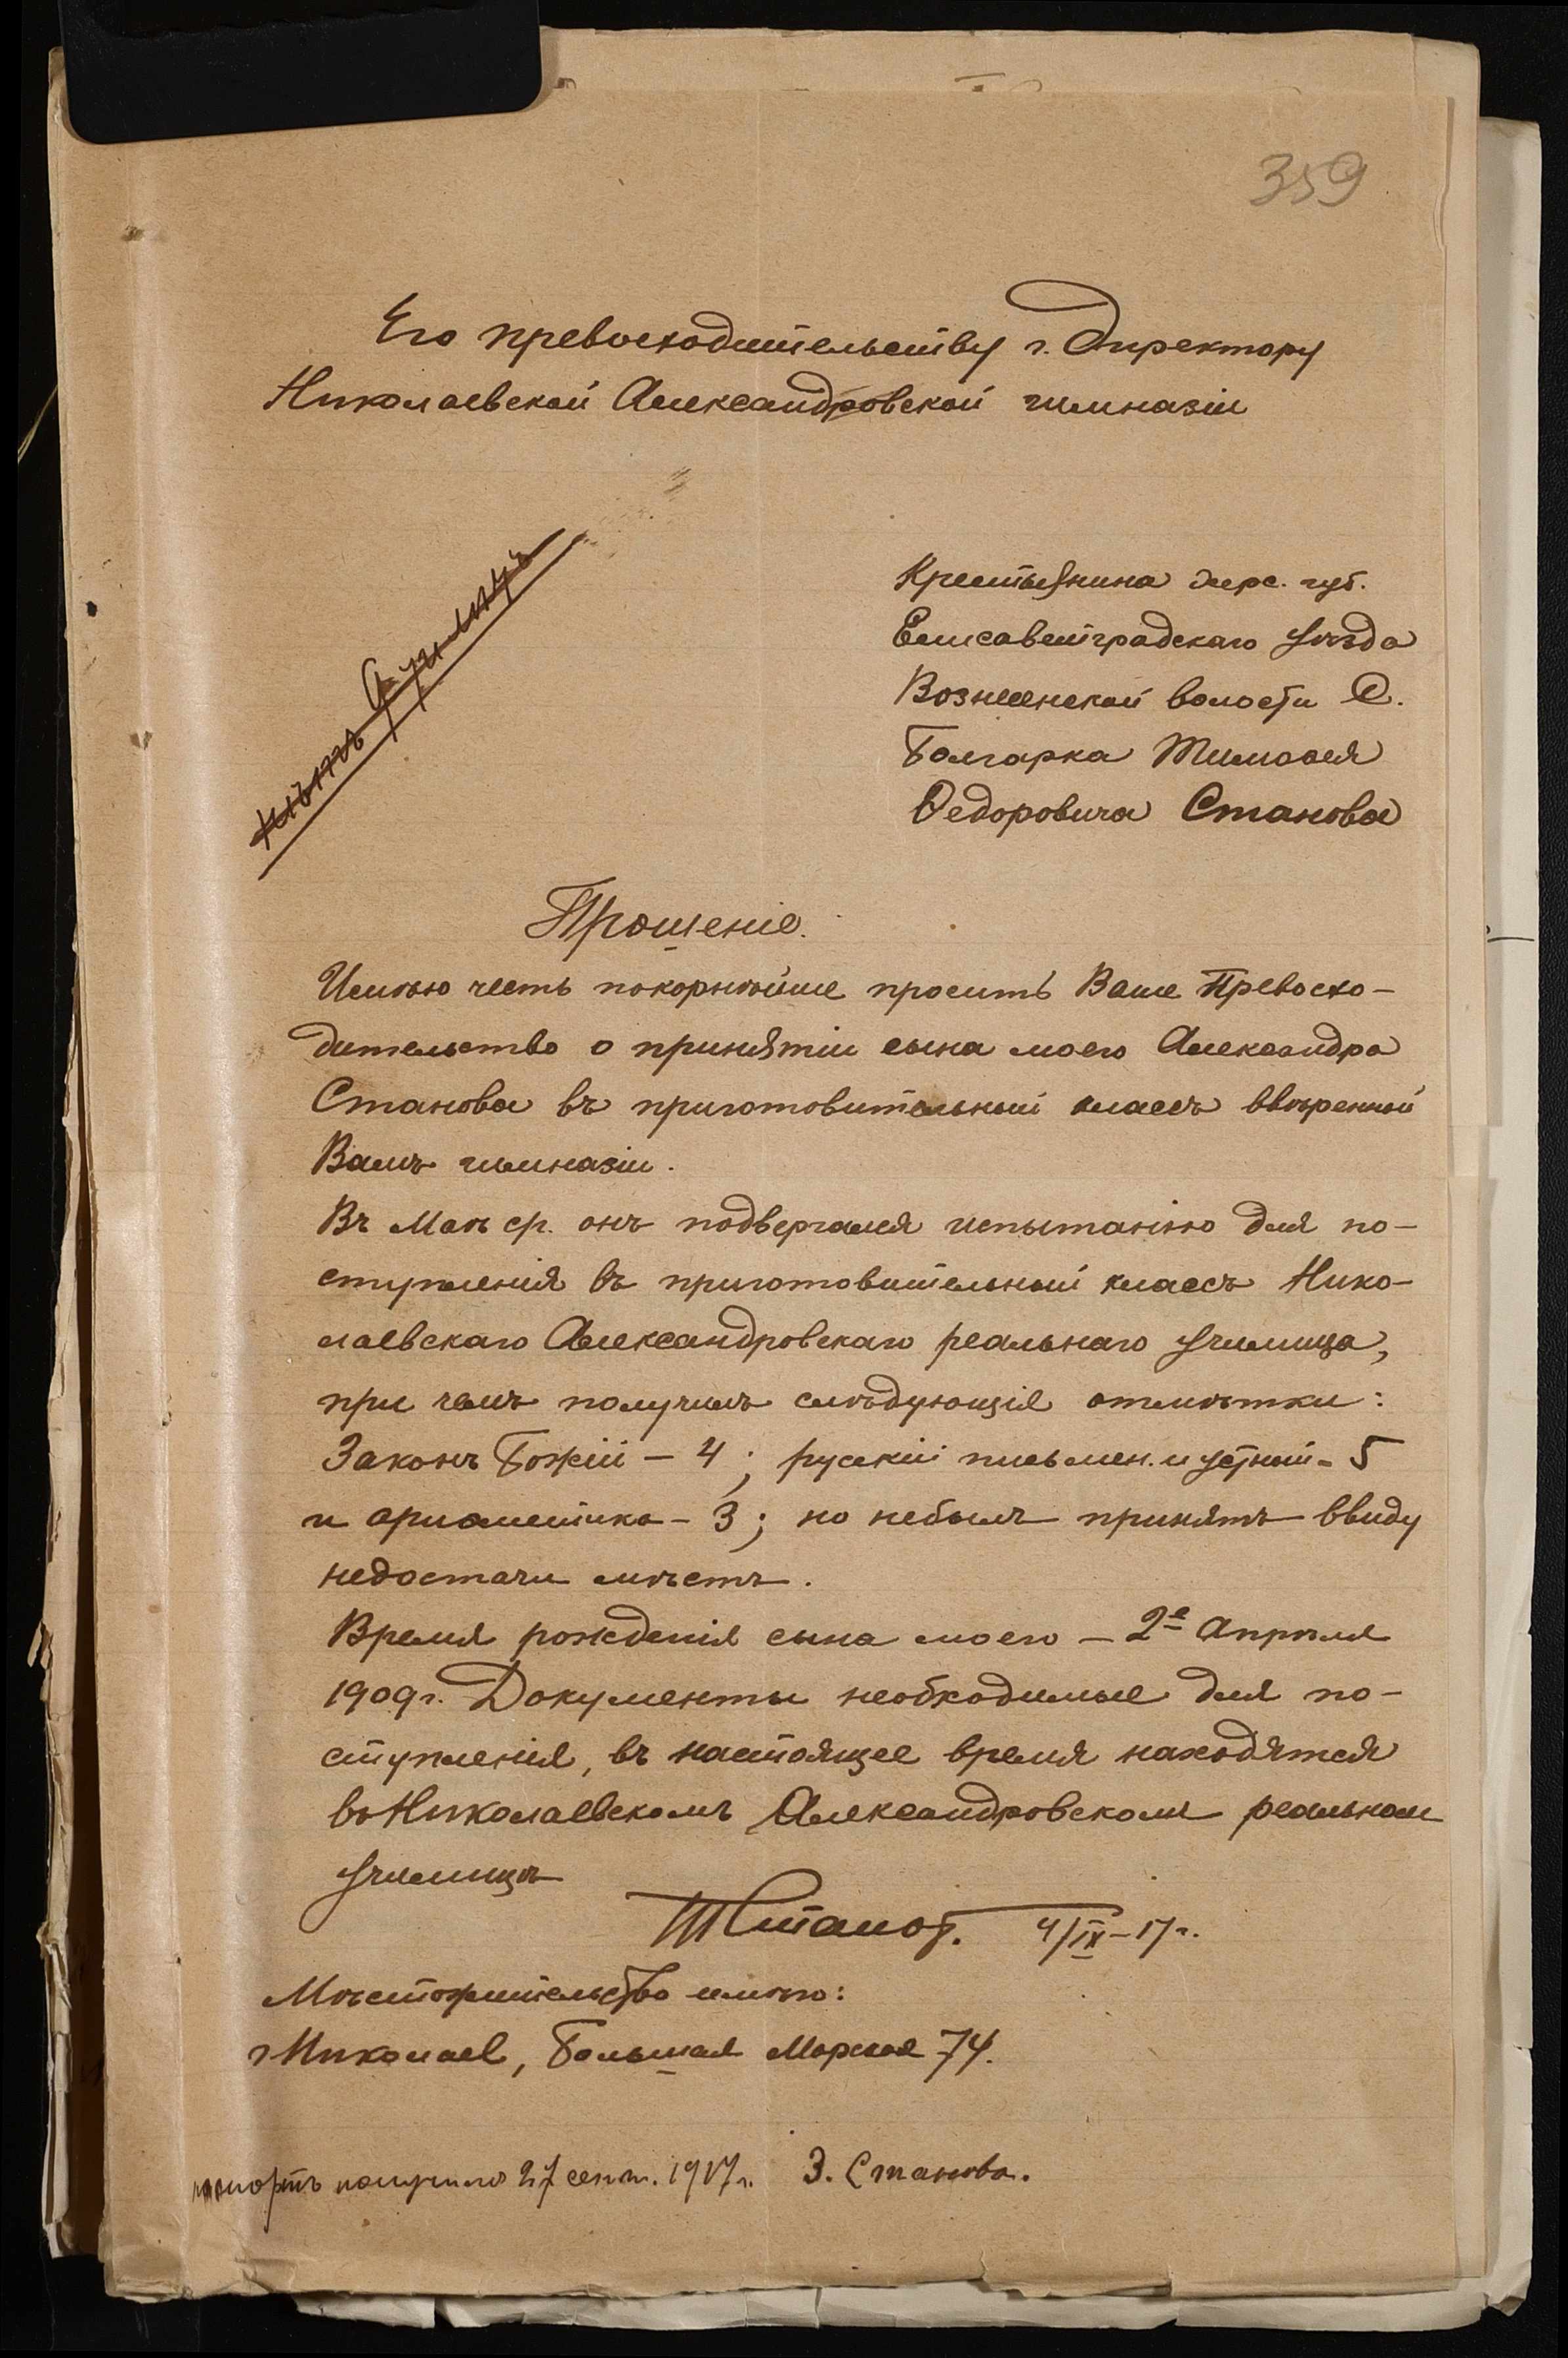 359
Его превосходительству г. Директору
Николаевской Александровской гимназіи
Крестьянина Херс. губ.
Елисаветградскаго уѣзда
Вознесенской волости С.
Болгарка Тимоѳея
Ѳедоровича Станова
Прошеніе.
Имѣю честь покорнѣйше просить Ваше Превосхо-
дительство о принятіи сына моего Александра
Станова въ приготовительный классъ ввѣренной
Вамъ гимназіи.
Въ Маѣ ср. онъ подвергался испытанію для по-
ступленія въ приготовительный классъ Нико-
лаевскаго Александровскаго реальнаго училища,
при чемъ получилъ слѣдующія отмѣтки:
Законъ Божій – 4; русскій письмен. и устный – 5
и ариѳметика – 3; но небылъ принятъ ввиду
недостачи мѣстъ.
Время рожденія сына моего – 2е Апрѣля
1909 г. Документы необходимые для по-
ступленія, въ настоящее время находятся
въ Николаевскомъ Александровскомъ реальном
училищѣ
ТСтанов. 4/IX–17 г.
Мѣстожительство имѣю:
г Николаев, Большая Морская 74.
получилъ 27 сент. 1917 г. З. Станова.